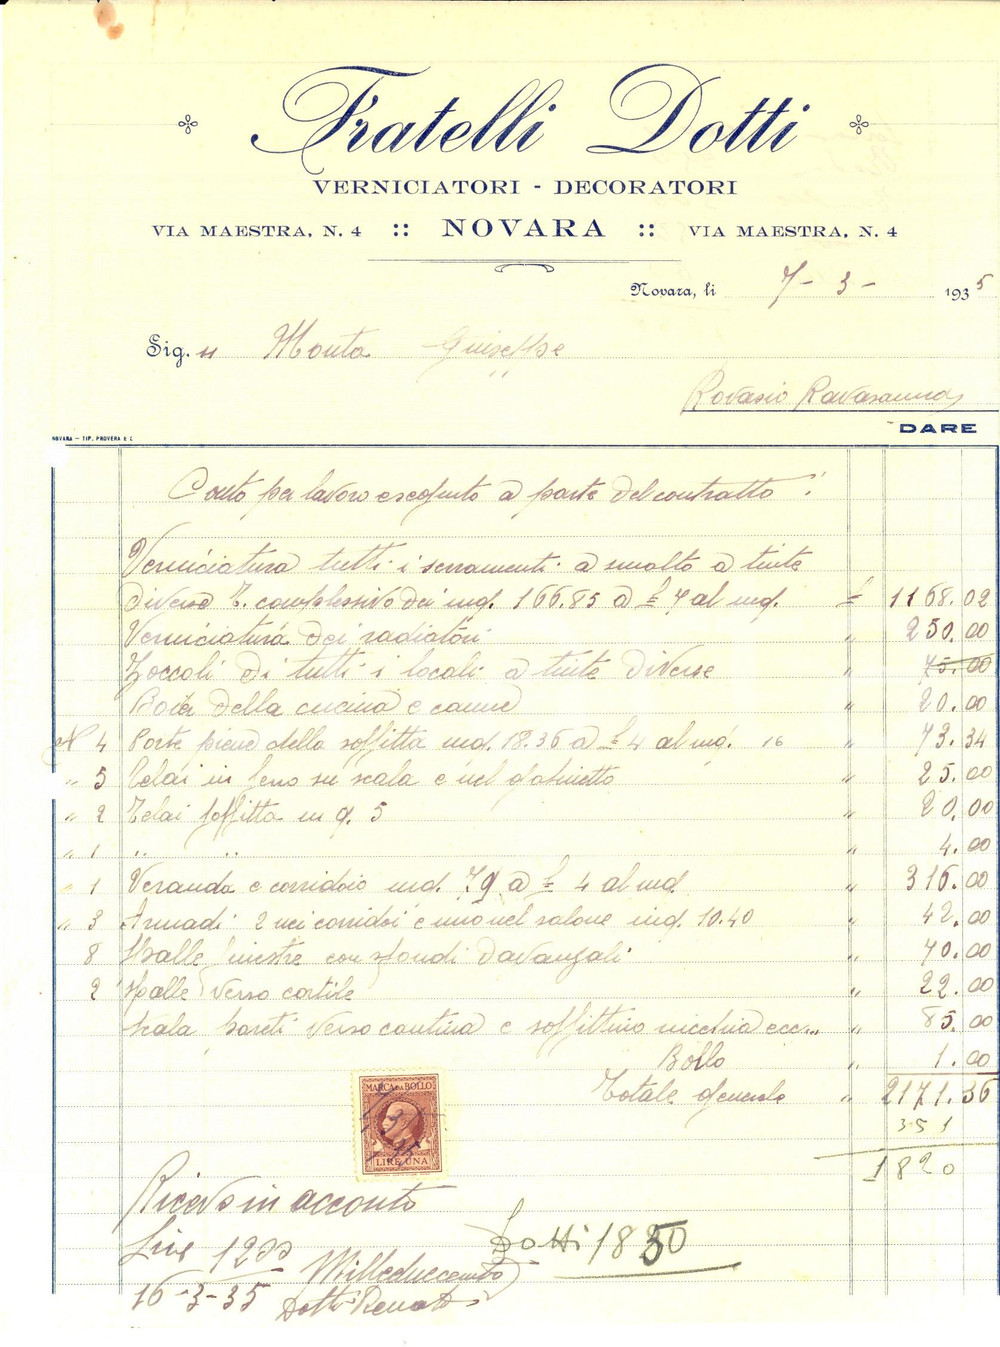 Fratelli Dotti
VERNICIATORI - DECORATORI
VIA MAESTRA, N. 4 :: NOVARA :: VIA MAESTRA, N. 4
Novara, li 7-3- 1935
Sig. Monta Guiseppe
Rovasio
DARE
NOVARA - TIP. PROVERA E C.
Conto per lavoro eseguito a parte del contratto
Verniciatura tutti i serramenti a smalto a tinte
diverse T. complessivo dei mq. 166.85 a £ 7 al mq. £ 1168.02
Verniciatura dei radiatori " 250.00
Zoccoli di tutti i locali a tinte diverse " 75.00
della cucina e canne " 20.00
N 4 Porte piene della soffitta mq. 18.36 a £ 4 al mq. 16 " 73.34
" 5 Telai in ferro su scala e nel gabinetto " 25.00
" 2 Telai soffitta mq. 5 " 20.00
" 1 " " " 4.00
" 1 Veranda e corridoio mq. 79 a £ 4 al mq. " 316.00
" 3 Armadi 2 nei corridoi e uno nel salone mq. 10.40 " 42.00
8 Spalle finestre con sfondi davanzali " 70.00
2 Spalle verso cortile " 22.00
Scala pareti verso cantina e soffittino nicchia ecc... " 85.00
Bollo " 1.00
Totale generale " 2171.36
351
1820
MARCA DA BOLLO
LIRE UNA
Ricevo in acconto
Lire 1200 Milleduecento
16-3-35 Dotti Renato
Dotti 1850